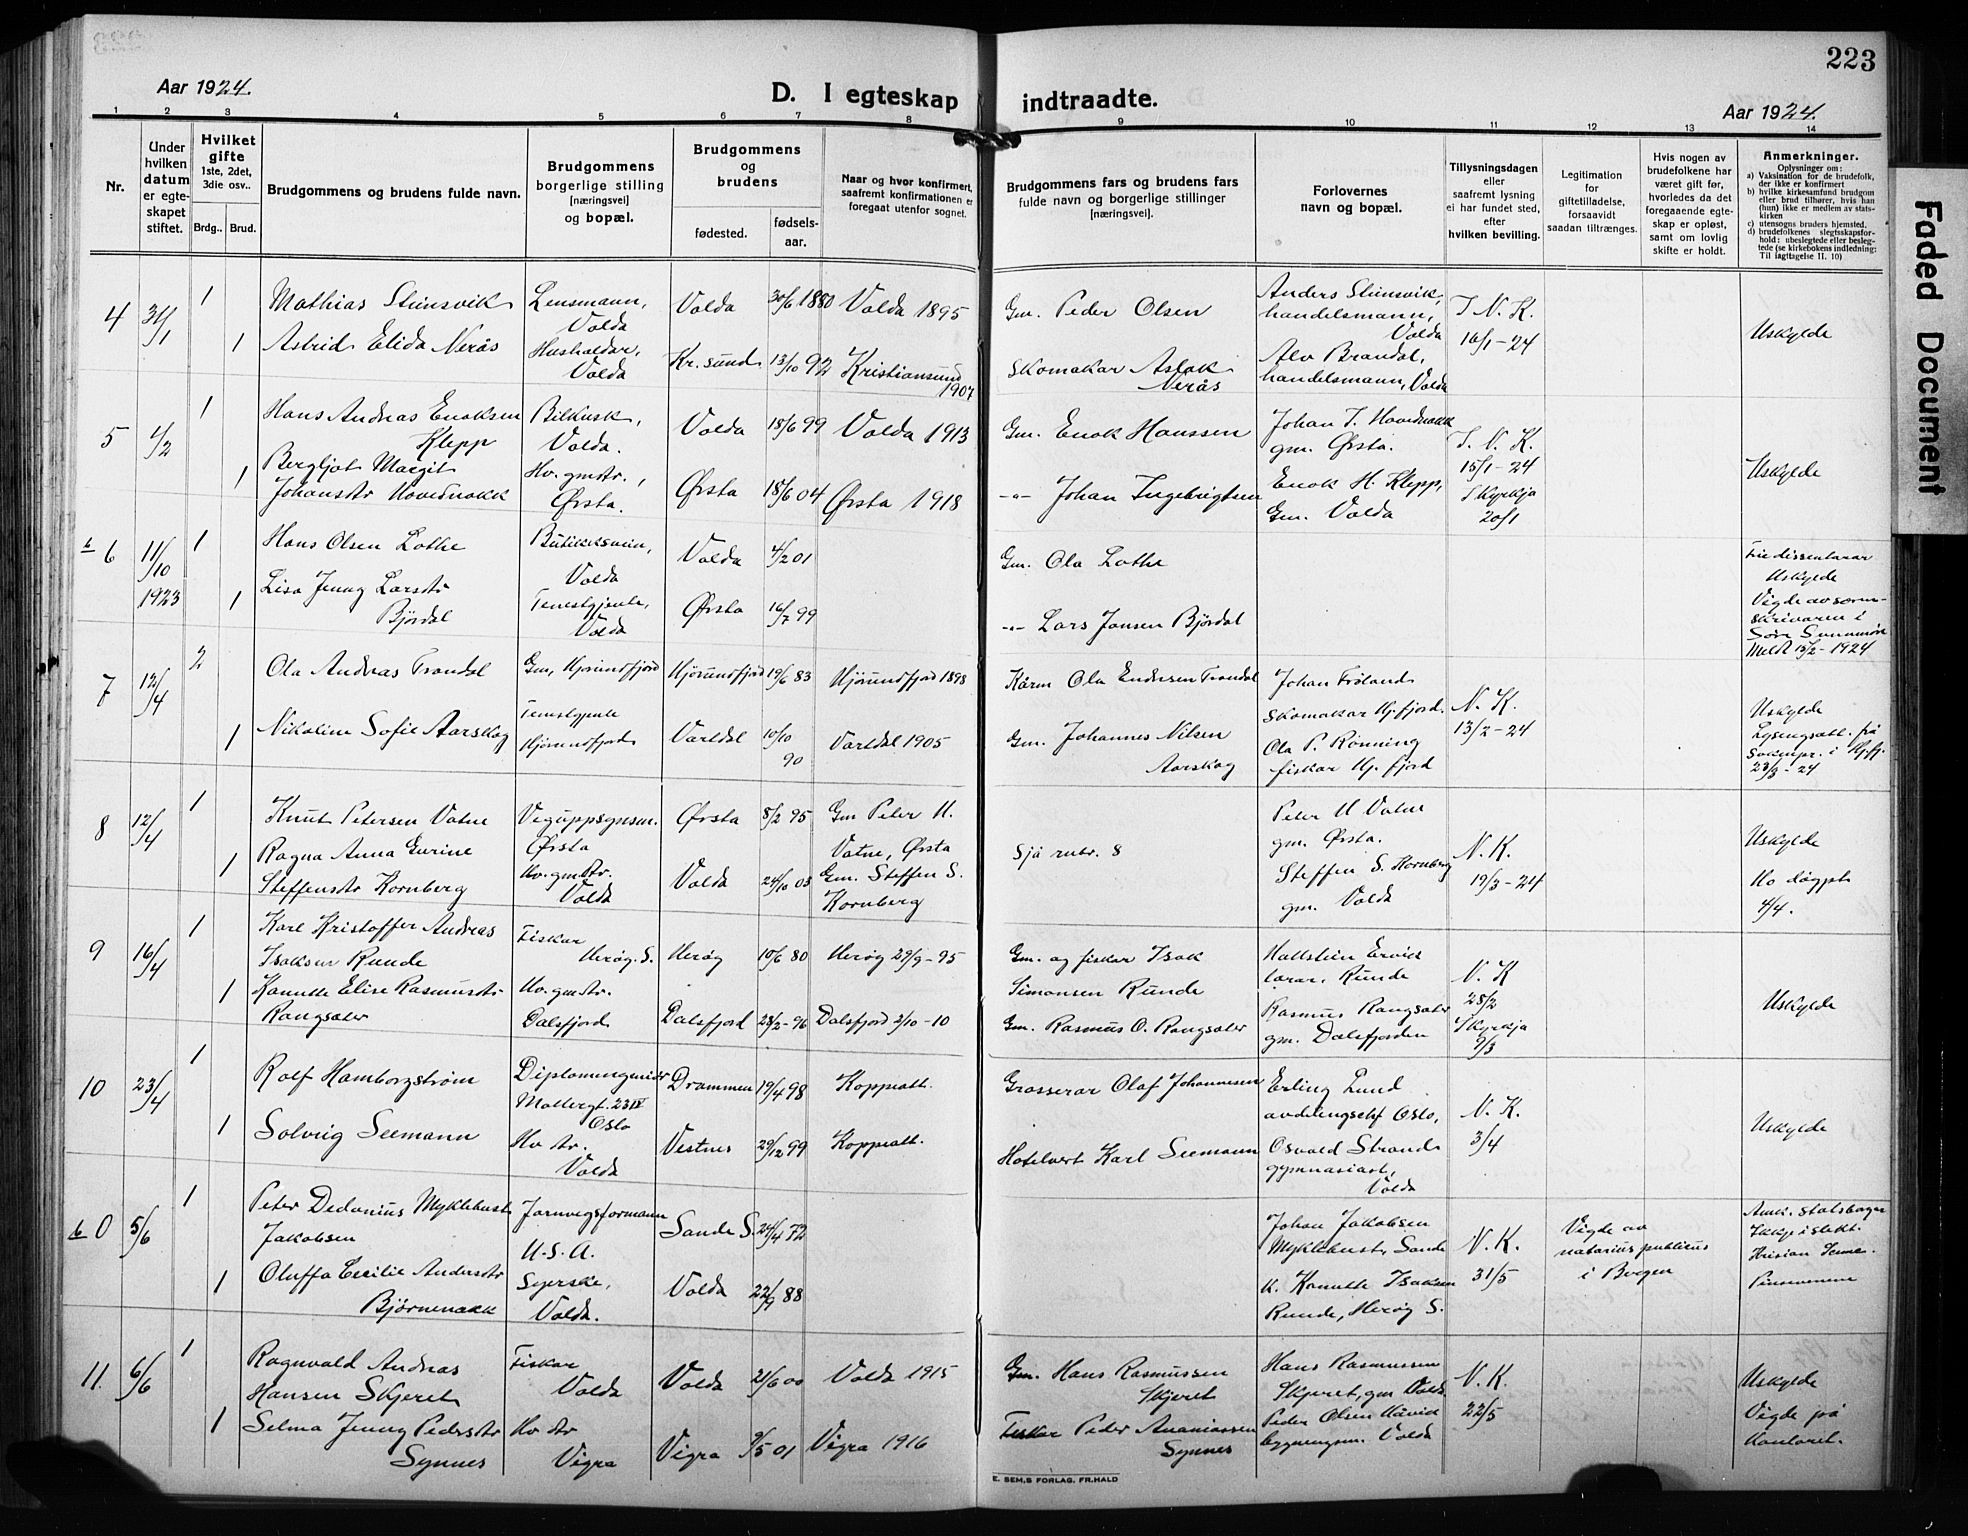 223
Aar 1924.
D. I egteskap indtraadte.
Aar 1924.
1 2 3 4 5 6 7 8 9 10 11 12 13 14
Nr.
Under hvilken datum er egteskapet stiftet.
Hvilket gifte 1ste, 2det, 3die osv..
Brdg.. Brud.
Brudgommens og brudens fulde navn.
Brudgommens borgerlige stilling [næringsvei] og bopæl.
Brudgommens og brudens
fødested.
fødsels-aar.
Naar og hvor konfirmert, saafremt konfirmationen er foregaat utenfor sognet.
Brudgommens fars og brudens fars fulde navn og borgerlige stillinger [næringsvei].
Forlovernes navn og bopæl.
Tillysningsdagen eller saafremt lysning ei har fundet sted, efter hvilken bevilling.
Legitimation for giftetilladelse, forsaavidt saadan tiltrænges.
Hvis nogen av brudefolkene har været gift før, hvorledes da det foregaaende egteskap er opløst, samt om lovlig skifte er holdt.
Anmerkninger.
Oplysninger om:
a) Vaksination for de brudefolk, der ikke er konfirmert
b) hvilke kirkesamfund brudgom eller brud tilhører, hvis han (hun) ikke er medlem av statskirken
c) utensogns bruders hjemsted.
d) brudefolkenes slegtsskapsforhold: ubeslegtede eller beslegtede (se kirkebokens indledning: Til iagttagelse II. 10)
4 31/1 1 Mathias Steinsvik Lensmann, Volda Volda 30/6 1880 Volda 1895 Gm. Peder Olsen Anders Steinsvik, handelsmann, Volda I N. K. 16/1-24 Uskylde
1 Astrid Elida Nerås Husholdar, Volda Kr.sund 13/10 92 Kristiansund 1907 Skomakar Aslak Nerås Alv Brandal, handelsmann, Volda
5 4/2 1 Hans Andreas Enoksen Klepp Bilkusk, Volda. Volda 18/6 99 Volda 1913 Gm. Enok Hanssen Johan I. Hovednakk gm. Ørsta. I. N. K. 15/1-24 I kyrkja 20/1 Uskylde
1 Bergljot Margit Johansdtr Hovednakk Hv. gmdtr., Ørsta. Ørsta 18/6 04 Ørsta 1918 -"- Johan Ingebrigtsen Enok H. Klepp, Gm. Volda
b 6 11/10 1923 1 Hans Olsen Lothe Butikksvein, Volda Volda 4/2 01 Gm. Ola Lothe Friedissentarar Uskylde Vigde av sorenskrivaren i Søre Sunnmøre Meldt 15/2-1924
1 Lisa Jenny Larsdtr Bjørdal Tenestgjente, Volda Ørsta 16/7 99 -"- Lars Jansen Bjørdal
7 12/4 2 Ola Andreas Trandal Gm, Hjørundfjord Hjørundfjord 19/6 83 Hjørundfjord 1898 Kårm Ola Endresen Trandal Johan Frøland skomakar Hj.fjord. N. K. 13/2-24 Uskylde Lysingsatt. frå soknepr. i Hj.fj. 23/3-24
1 Nikoline Sofie Aarskog Tenestgjente Hjørundfjord Vartdal 10/10 90 Vartdal 1905 Gm. Johannes Nilsen Aarskog Ola P. Rønning fiskar Hj.fjord
8 12/4 1 Knut Petersen Vatne Veguppsynsm. Ørsta Ørsta 8/2 95 Gm Peter H. Vatne, Ørsta Sjå rubr. 8 Peter H Vatne gm. Ørsta. N. K. 19/3-24 Uskylde
1 Ragna Anna Gurine Steffensdtr Kornberg Hv. gmdtr. Volda Volda 24/10 03 Gm. Steffen S. Kornberg Steffen S. Kornberg gm. Volda Ho døypt 4/4.
9 16/4 1 Karl Kristoffer Andreas Isaksen Runde Fiskar Herøy. S. Herøy 10/6 80 Herøy 29/9-95 Gm. og fiskar Isak Simonsen Runde Hallstein Ervik lærar, Runde N. K 28/2 I kyrkja 9/3 Uskylde
1 Kanutte Elise Rasmusdtr Rangsæter Hv. gmdtr. Dalsfjord Dalsfjord 23/2-96 Dalsfjord 2/10-10 Gm. Rasmus O. Rangsæter Rasmus Rangsæter gm. Dalsfjorden
10 23/4 1 Rolf Hamborgstrøm Diplomingeniør Møllergt. 23 IV Oslo Drammen 19/4 98 Koppeatt. Grosserar Olaf Johannesen Erling Lund avdelingschf Oslo, N. K. 3/4 Uskylde
1 Solveig Seemann Hv dtr. Volda Vestnes 29/12 99 Koppeatt. Hotelvert Karl Seemann Osvald Strand gymnasiast, Volda
b 0 5/6 1 Peter Dedanius Myklebust Jakobsen Jarnvegsformann U.S.A. Sande S. 24/4 72 Johan Jakobsen Myklebust, Sande N. K. 31/5 Vigde av notarius publicus i Bergen Amk. statsborgar
1 Oluffa Cecilie Andersdtr Bjørnenakk Syerske, Volda. Volda 22/9 88 K. Kanutte Isaksen Runde, Herøy S.
11. 6/6 1 Ragnvald Andreas Hansen Skjeret Fiskar Volda Volda 21/6 00 Volda 1915 Gm. Hans Rasmussen Skjeret Hans Rasmussen Skjeret, gm Volda N. K. 22/5 Uskylde
1 Selma Jenny Pedersdtr Synnes Hv dtr Vigra Vigra 9/5 01 Vigra 1916 Fiskar Peder Ananiassen Synnes Peder Olsen Håvik bygningsm. Volda Vigde på kontoret.
E. SEM,S FORLAG, FR.HALD
Faded Document